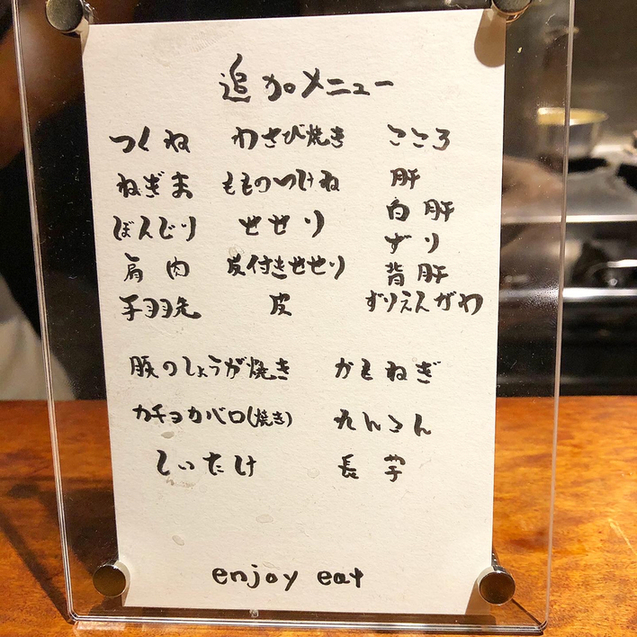 追加メニュー
つくね わさび焼き こころ
ねぎま もものつけね 肝
白肝
ぼんじり せせり ずり
肩肉 皮付きせせり 背肝
手羽先 皮 ずりえんがわ
豚のしょうが焼き かもねぎ
カチョカバロ(焼き) れんこん
しいたけ 長芋
enjoy eat